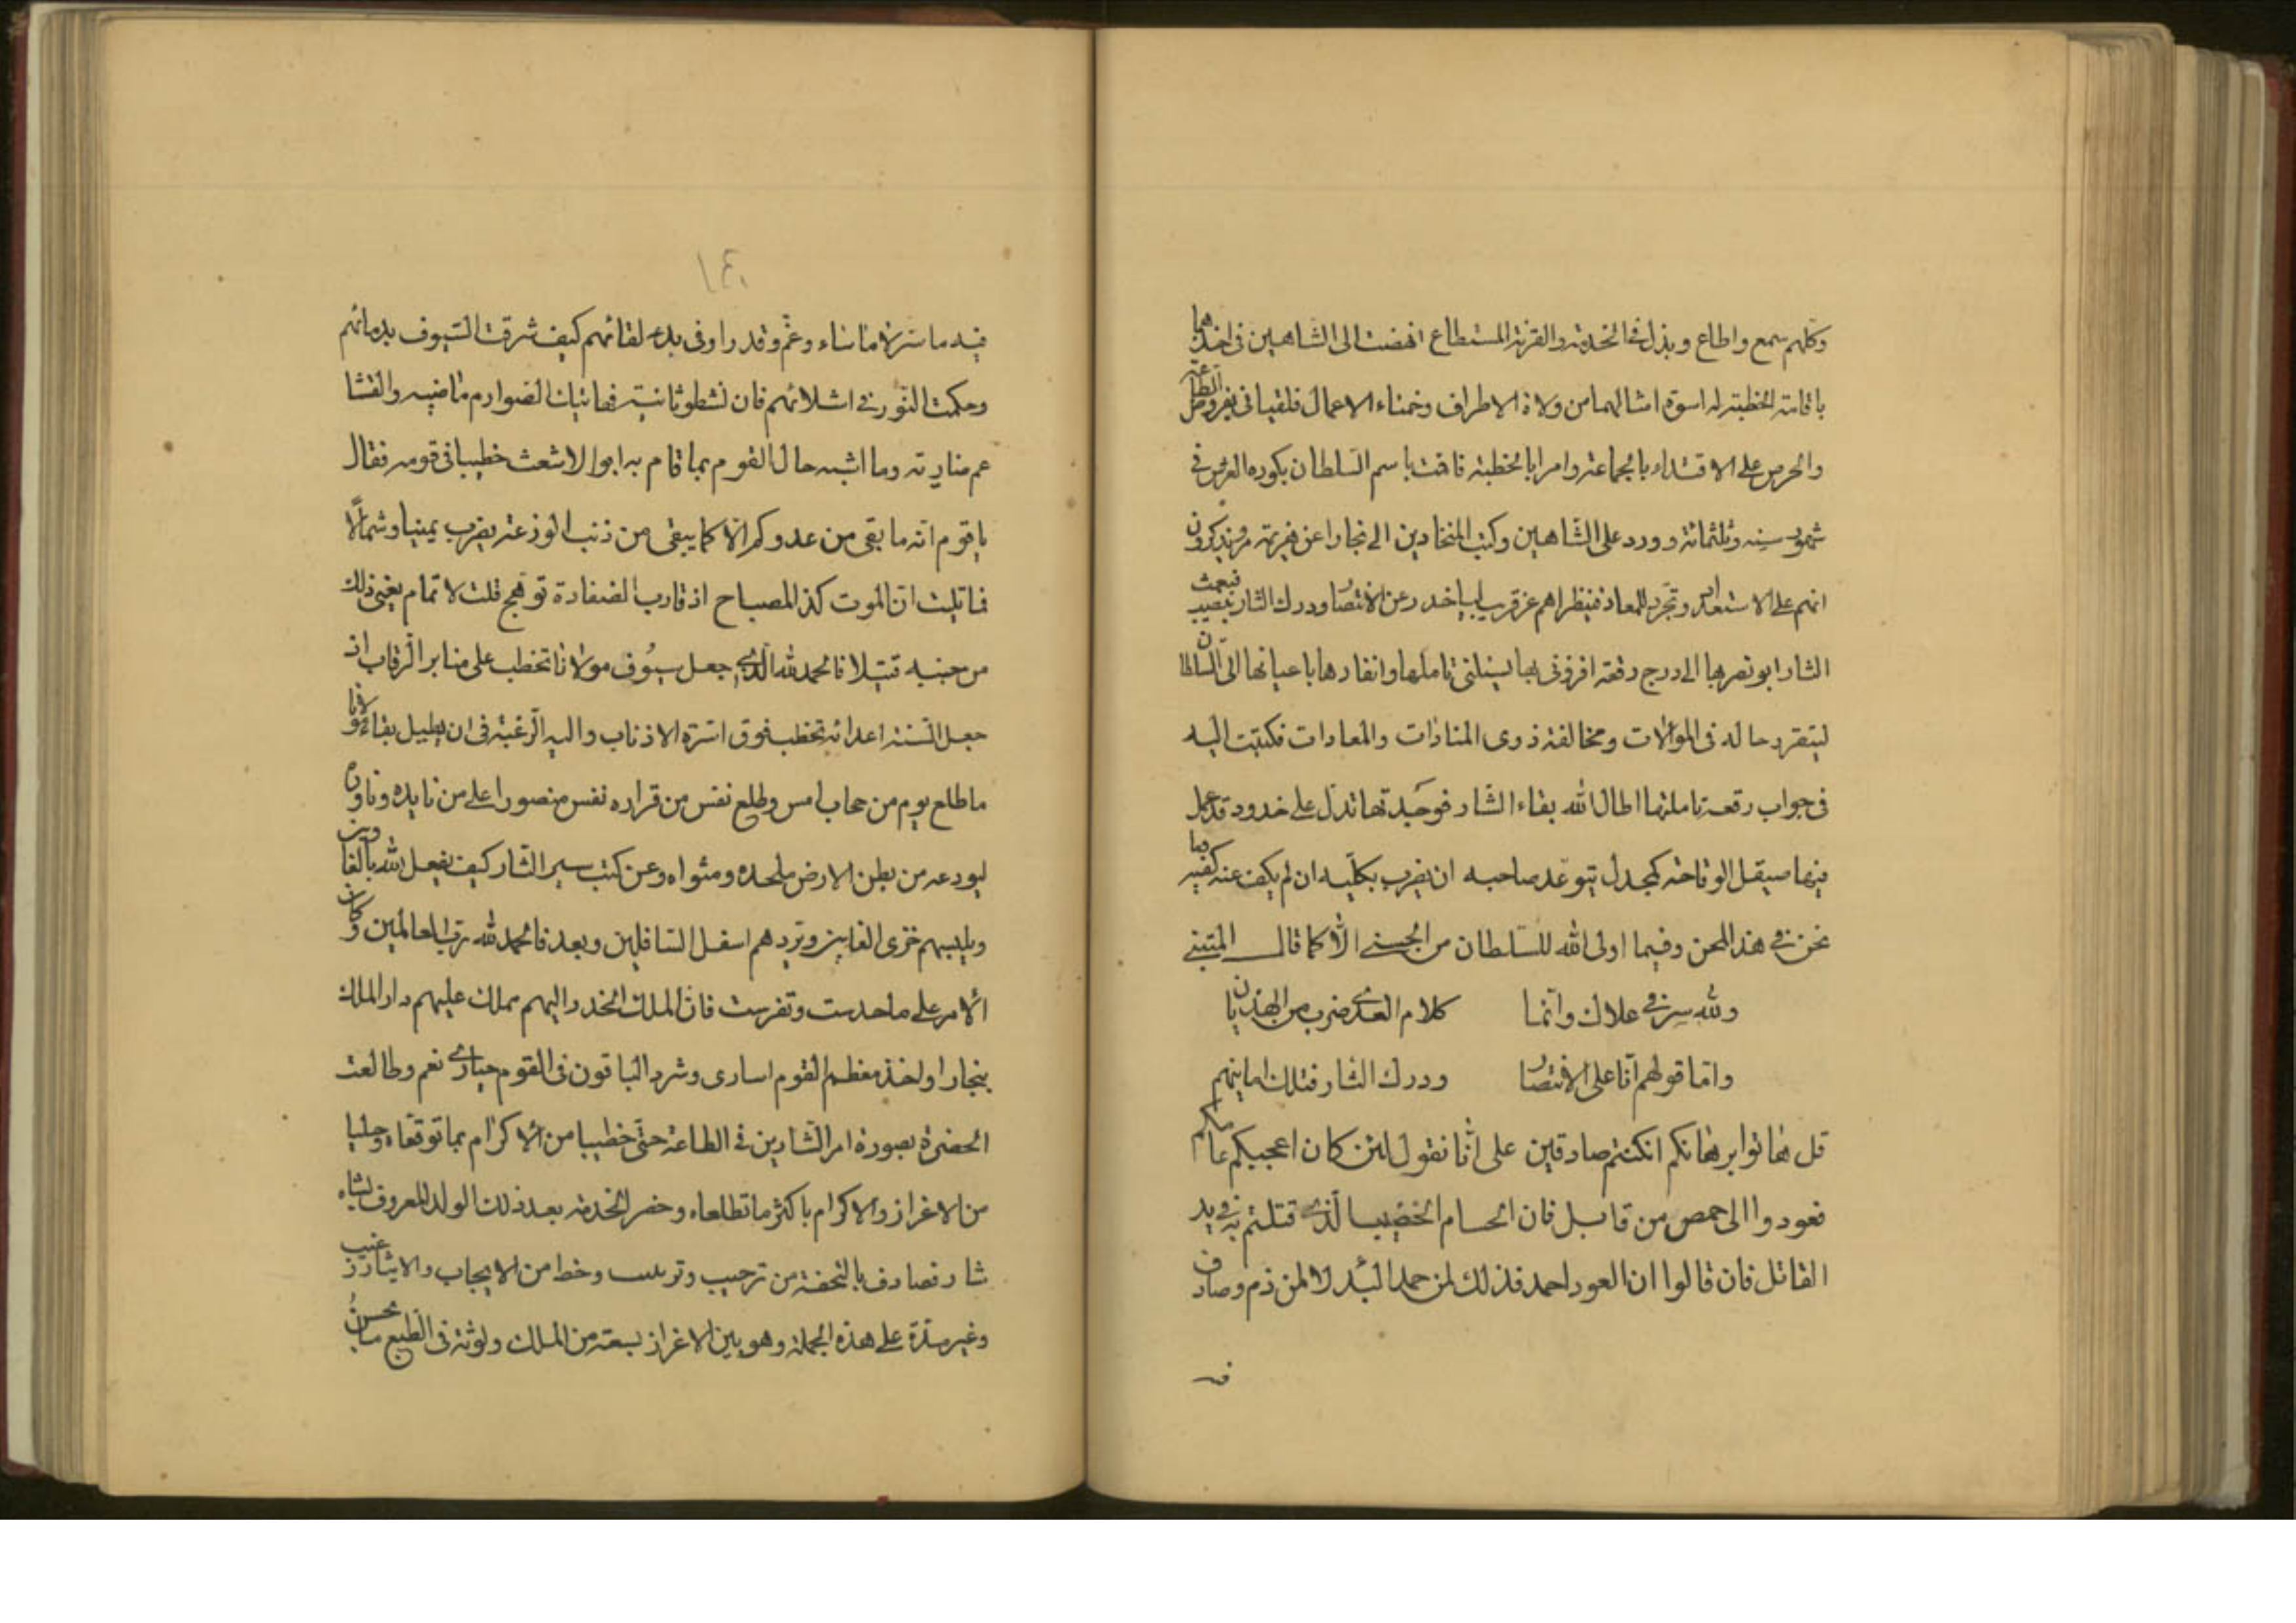 وكلهم سمع واطاع وبذل فى الخدمة والقربة المستطاع انهضت الى الشاهين فى اخذهما
باقامة الخطبة له اسوة امثالهما من ولاة الاطراف وضمناء الاعمال فلقيانى بفروض الطاعة
والحرص على الاقتداء بالجماعة وامرا بالخطبة فاقت باسم السلطان بكوره الغرش فى
شهور سنه وثلثمائة وورد على الشاهين وكتب المنحادين الى بخارا عن هزيمة
انهم على الاستعداد وتجرد للمعاد فينظراهم عن قريب اخدر عن الاقتصا ودرك الثار فبعث
الشار ابو نصر بها الى درج رقعة افرزنى بها يسئلنى تاملها وانفادها باعيانها الى السلطان
ليتقرر حاله فى الموالات ومخالفة ذوى المنادات والمعادات فكتبت اليه
فى جواب رقعة تاملتها اطال الله بقاء الشار فوجدتها تدل على خدود قد عمل
فيها صيقل الوقاحة كمجدل يتوعد صاحبه ان يضرب بكليه ان لم يكف عنه كفيه وما
نحن فى هذا المحن وفيما اولى الله للسلطان من الحسنى الا كما قال المتنبى
ولله سر فى علاك وانما كلام العدى ضرب من الهذيان
واما قولهم انا على الاقتصا ودرك الثار فتلك امانيهم
قل هاتوا برهانكم ان كنتم صادقين على انا نقول لئن كان اعجبكم عامكم
فعودوا الى حمص من قابل فان الحسام الخضيب الذى قتلتم به فى يد
القاتل فان قالوا ان العود احمد فذلك لمن حمد البدء لا لمن ذم وصادف
فى
١٤١
فيه ما سر لا ما ساء وغم وقد راوا فى بدء لقائهم كيف شرقت السيوف بدمائهم
وحكمت النور فى اشلائهم فان نشطو ثانية فهاتيك الصوارم ماضيه والقشا
عم ضارية وما اشبه حال القوم بما قام به ابو الاشعث خطيبا فى قومه فقال
يا قوم انه ما بقى من عدوكم الا كما يبقى من ذنب الوزغة يضرب يمينا وشمالا
فما تلبث ان الموت كذ المصباح اذ قارب الضفادة توهج قلت لا تمام يعنى ذلك
من جنبه قتيلا فالحمد لله الذى جعل سيوف مولانا تخطب على منابر الرقاب اذ
جعل السنة اعدائه تخطب فوق اسرة الاذناب واليه الرغبة فى ان يطيل بقاء مولانا
ما طلع يوم من حجاب امس وطلع نفس من قراره نفس منصورا على من نابده وناواه
ليودعه من بطن الارض ملحده ومثواه وعن كتب سير الشار كيف يفعل الله بالغاوين
ويلبسهم خزى الغابين ويردهم اسفل السافلين وبعد فالحمد لله رب العالمين وكان
الامر على ما حدست وتفرست فان الملك انحدر اليهم مملك عليهم دار الملك
ببخارا واخذ معظم القوم اسارى وشرد الباقون فى القوم حيارى نعم وطالعت
الحضرة بصورة امر الشارين فى الطاعة حتى خطيبا من الاكرام بما توقعاه وحليا
من الاعزاز والاكرام باكثر ما تطلعاه وحضر الخدمة بعد ذلك الولد المعروف بشاه
شار فصادف بالتحفة من ترحيب وترتيب وحظ من الايجاب والايثار
وغبر مدة على هذه الجملة وهو بين الاعزاز بسعة من الملك ولوثة فى الطبع ما يحسن